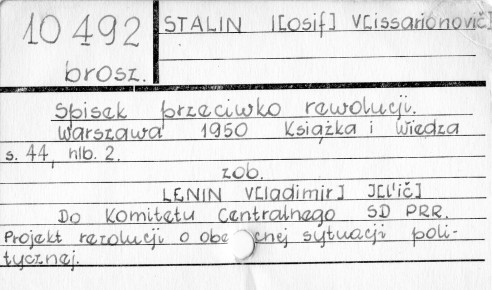 10 492
brosz.
STALIN I[osif] V[issarionovič]
Spisek przeciwko rewolucji.
Warszawa 1950 Książka i Wiedza
s. 44, nlb. 2.
zob.
LENIN V[ladimir] I[l'ič]
Do Komitetu Centralnego SD PRR.
Projekt rezolucji o obecnej sytuacji poli-
tycznej.